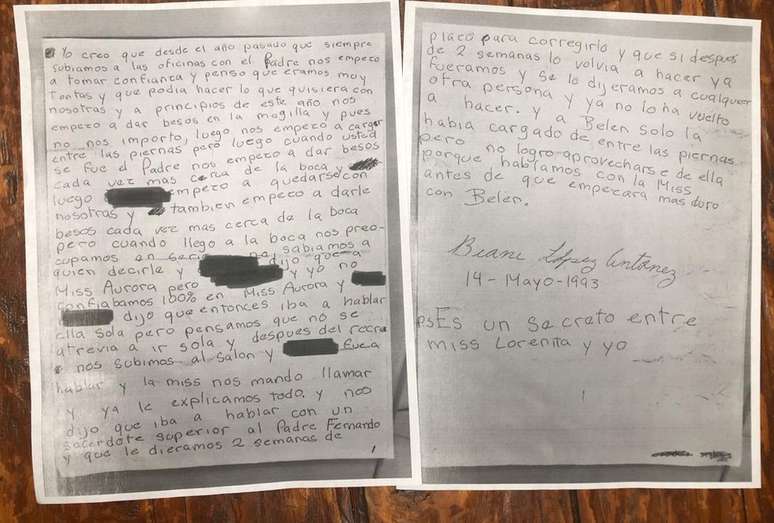 Yo creo que desde el año pasado que siempre
subiamos a las oficinas con el Padre nos empezo
a tomar confianza y penso que eramos muy
tontas y que podia hacer lo que quisiera con
nosotras y a principios de este año nos
empezo a dar besos en la megilla y pues
no nos importo, luego nos empezo a cargar
entre las piernas pero luego cuando usted
se fue el Padre nos empezo a dar besos
cada vez mas cerca de la boca y
luego empezo a quedarse con
nosotras y tambien empezo a darle
besos cada vez mas cerca de la boca
pero cuando llego a la boca nos preo-
cupamos en serio no sabiamos a
quien decirle y dijo que a
Miss Aurora pero y yo no
confiabamos 100% en Miss Aurora y
dijo que entonces iba a hablar
ella sola pero pensamos que no se
atrevia a ir sola y despues del recreo
nos subimos al salon y fue a
hablar y la miss nos mando llamar
y ya le explicamos todo, y nos
dijo que iba a hablar con un
sacerdote superior al Padre Fernando
y que le dieramos 2 semanas de
1
plazo para corregirlo y que si despues
de 2 semanas lo volvia a hacer ya
fueramos y se lo dijeramos a cualquier
otra persona y ya no lo ha vuelto
a hacer. y a Belen solo la
habia cargado de entre las piernas
pero no logro aprovecharse de ella
porque hablamos con la Miss
antes de que empezara mas duro
con Belen.
Biani López Antúnez
14-Mayo-1993
psEs un secreto entre
miss Lorenita y yo